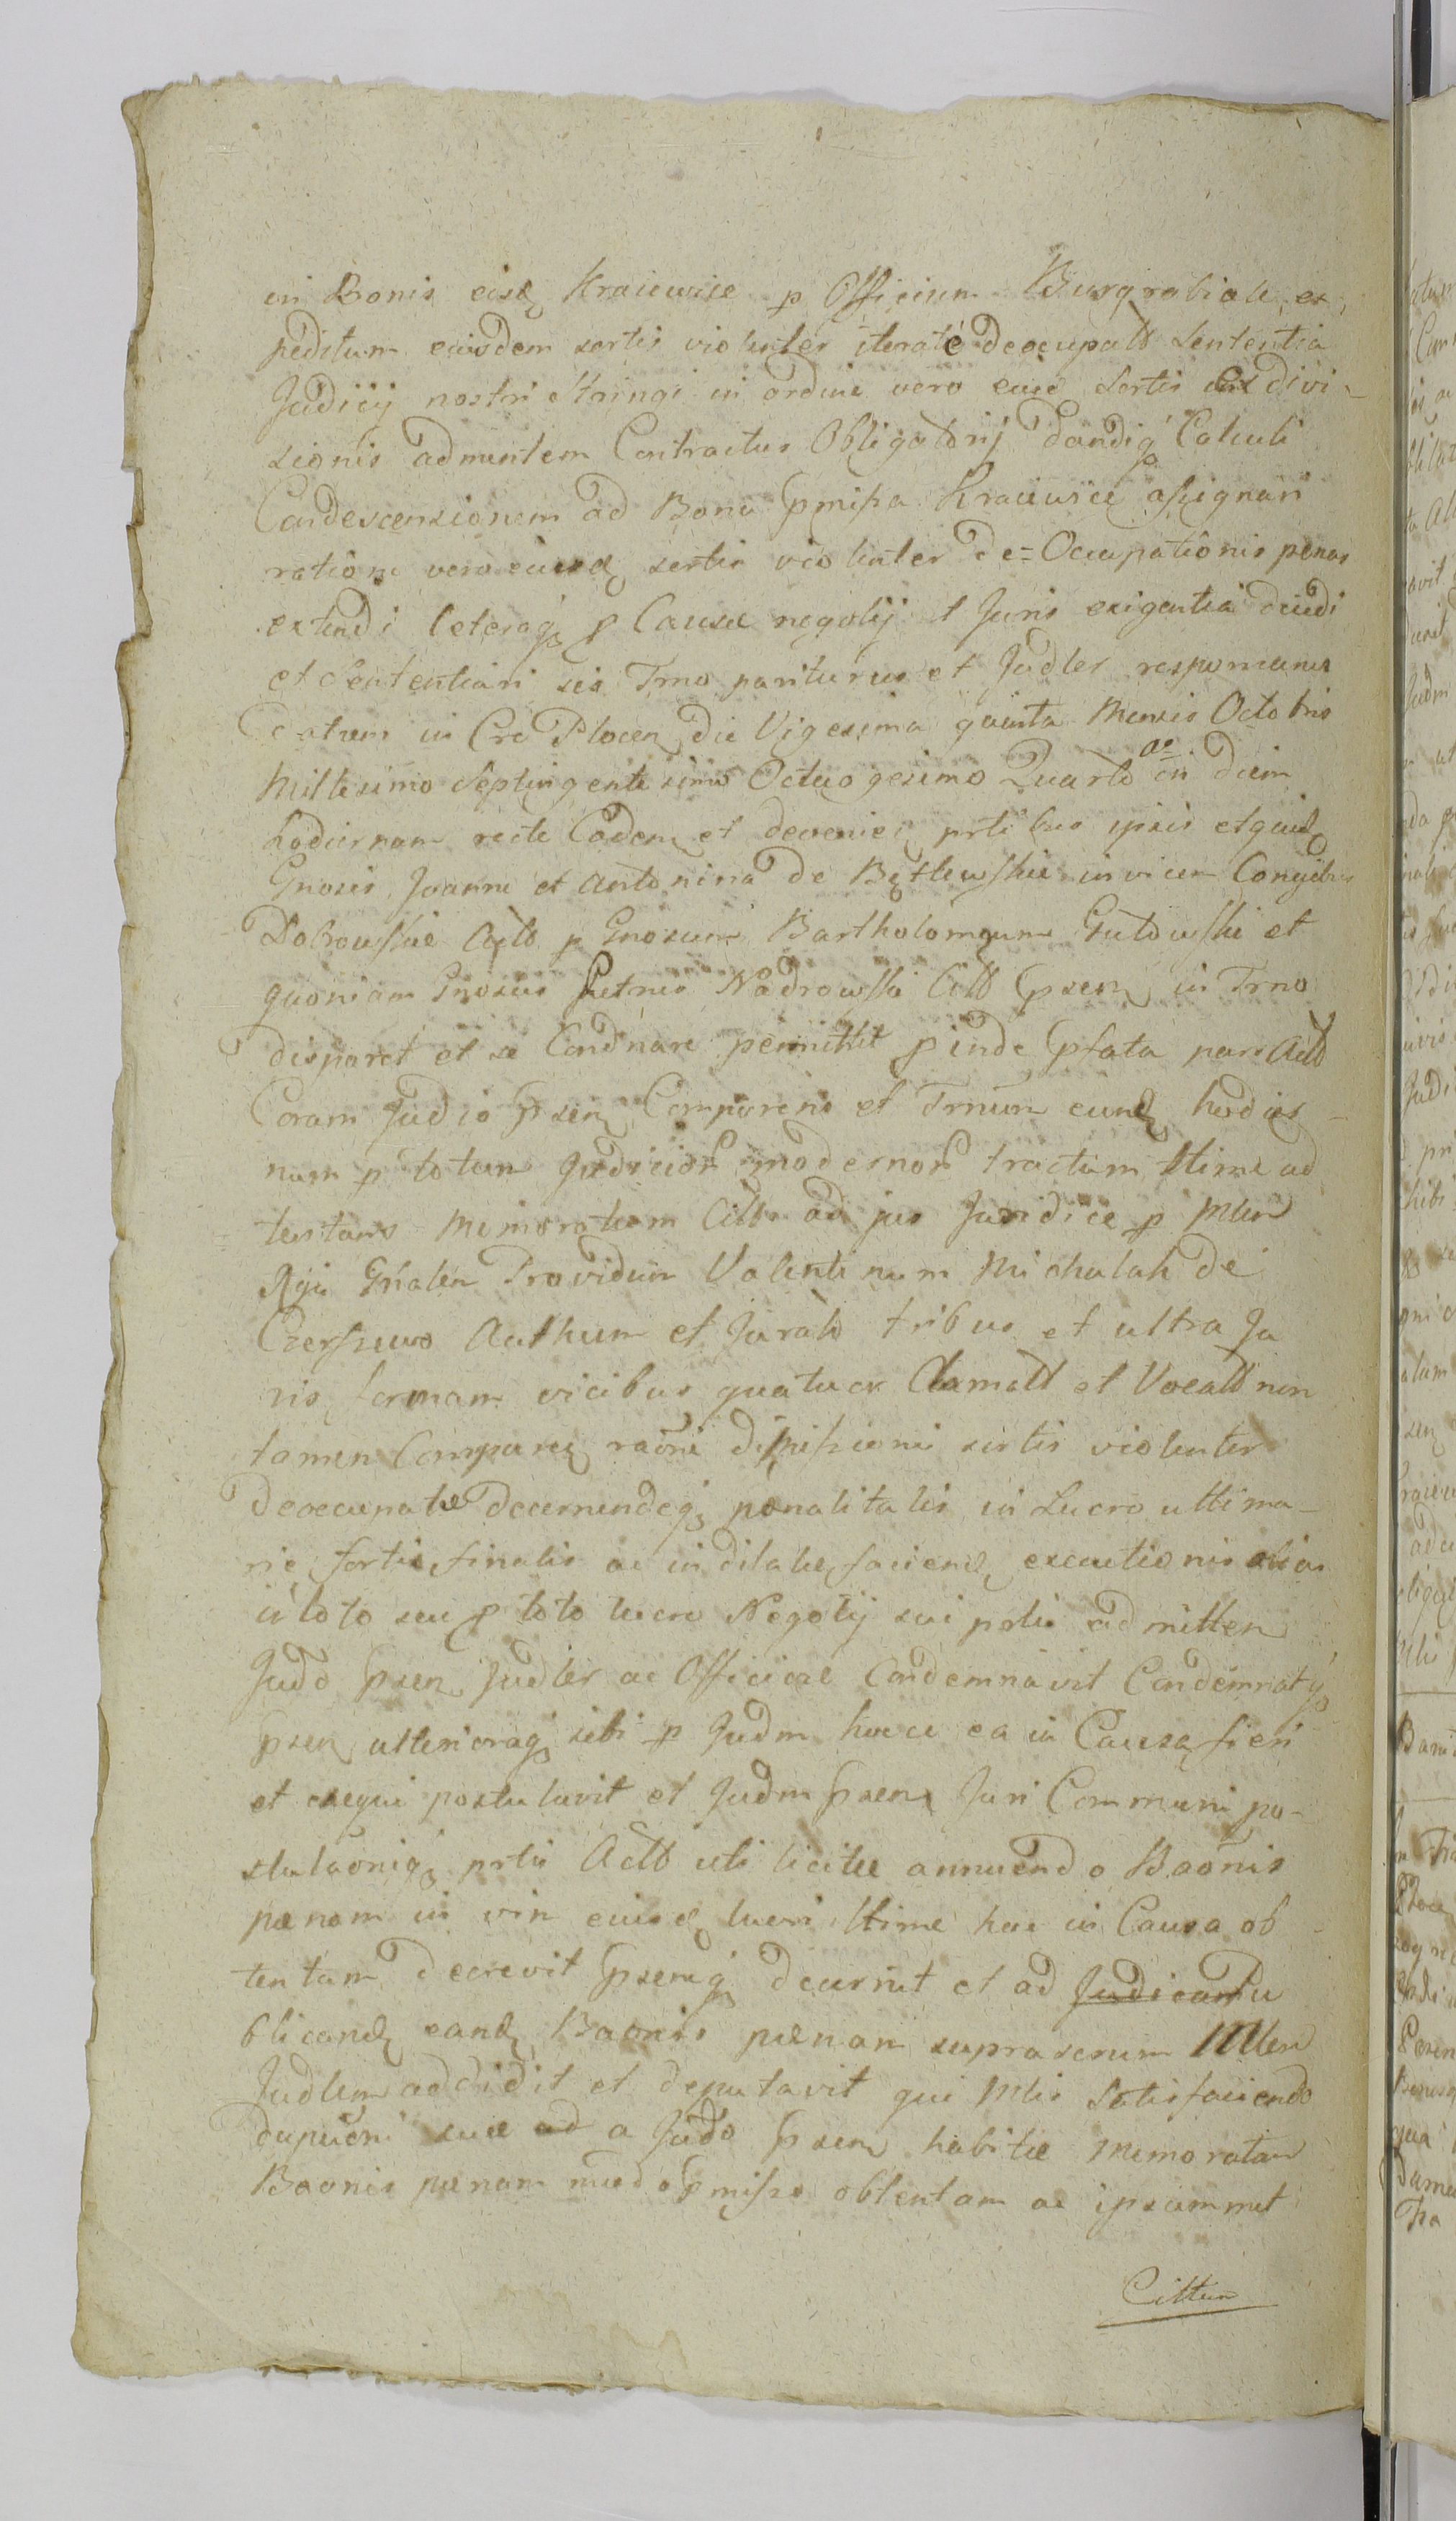 in Bonis eisd Kraiewice p Officium Burgrabiale, ex,
peditum eiusdem sortis violenter iterate deocupatt Sententia
Judicij nostri Stringi in ordine vero eiusd Sortis exdivi-
sionis admentem Contractus Obligatorij dandiq Calculi
Condescensionem ad Bona pmissa Kraiewice assignari
ratione vero eiusd sortis violenter de=Occupationis penas
extendi Ceteraq p Causae negotij et Juris exigentia decidi
et Sententiari sis Trno pariturus et Judler responsurus
Datum in Cro Plocen die Vigesima quinta Mensis Octobris
Millesimo Septingentesimo Octuogesimo Quarto ao in diem
hodiernam recte Caden et devenien prtibus ipsis et quid
Gnosis Joanne et Antonina de Bętlewskie invicem Conjgibus
Dobrowskie Actb p Gnosum Bartholomeum Gutowski et
quoniam Gnosus Petrus Nadrowski Citt psen in Trno
disparet et se Condnare permittit p inde pfata pars Actb
Coram Judio psen Comparens et Trnum eund hodier-
num p totum Judicior modernor tractum ltime ad
tentans Memoratum Citt ad jus Juridice p Mlem
Rgii Gnalen Providum Valentinum Michalak de
Czerszewo Authum et Juratb tribus et ultra Ju
ris formam vicibus quatuor Clamatt et Vocatt non
tamen Comparen raone dimissionis sortis violenter
deoccupatae decernendeq penalitatis in Lucro ultima-
rie fortis finalis ac indilate faciend executionis alias
in toto seu p toto lucro Negotij sui prtis admitten
Judo psen Judler ac Officiose Condemnavit Condemnatq
psen ulterioraq sibi p Judm hocce ea in Causa fieri
et exequi postulavit et Judm psens Juri Communi po-
stulaoniq prtis Actb uti licitae annuendo Baonis
penam in vin eiusd lucri ltime hac in Causa ob-
tentam decrevit psenq decernit et ad Judicandu
blicand eand Baonis penam suprascrum Mlem
Judlem addidit et deputavit qui Mlis Satisfaciendo
deputaoni suae ad a Judo psen habitae memoratam
Baonis penam modo pmisso obtentam ac ipsummet
Cittum